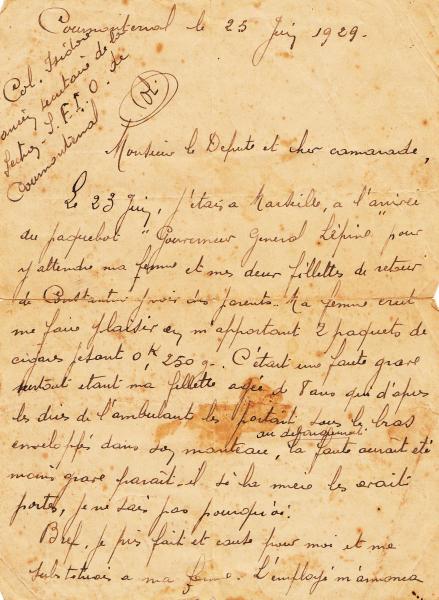 Cournonterral le 25 Juin 1929.
Col. Isidore
ancien secrétaire de la
Section S.F.I.O. de
Cournonterral
Monsieur le Depute et cher camarade,
Le 23 Juin, j'étais a Marseille, a l'arrivée
du paquebot "Gouverneur General Lépine" pour
y attendre ma femme et mes deux fillettes de retour
de Constantine, voir des parents. Ma femme crut
me faire plaisir en m'apportant 2 paquets de
cigares pesant 0k,250 g. C'était une faute grave
surtout etant ma fillette agée de 8 ans qui d'apres
les dires de l'ambulant les portait sous les bras
au debarquement
enveloppés dans son manteau, la faute aurait été
moins grave parait-il si la mere les avait
portés, je ne sais pas pourquoi!
Bref, je pris fait et cause pour moi et me
substituais a ma femme. L'employé m'annonca